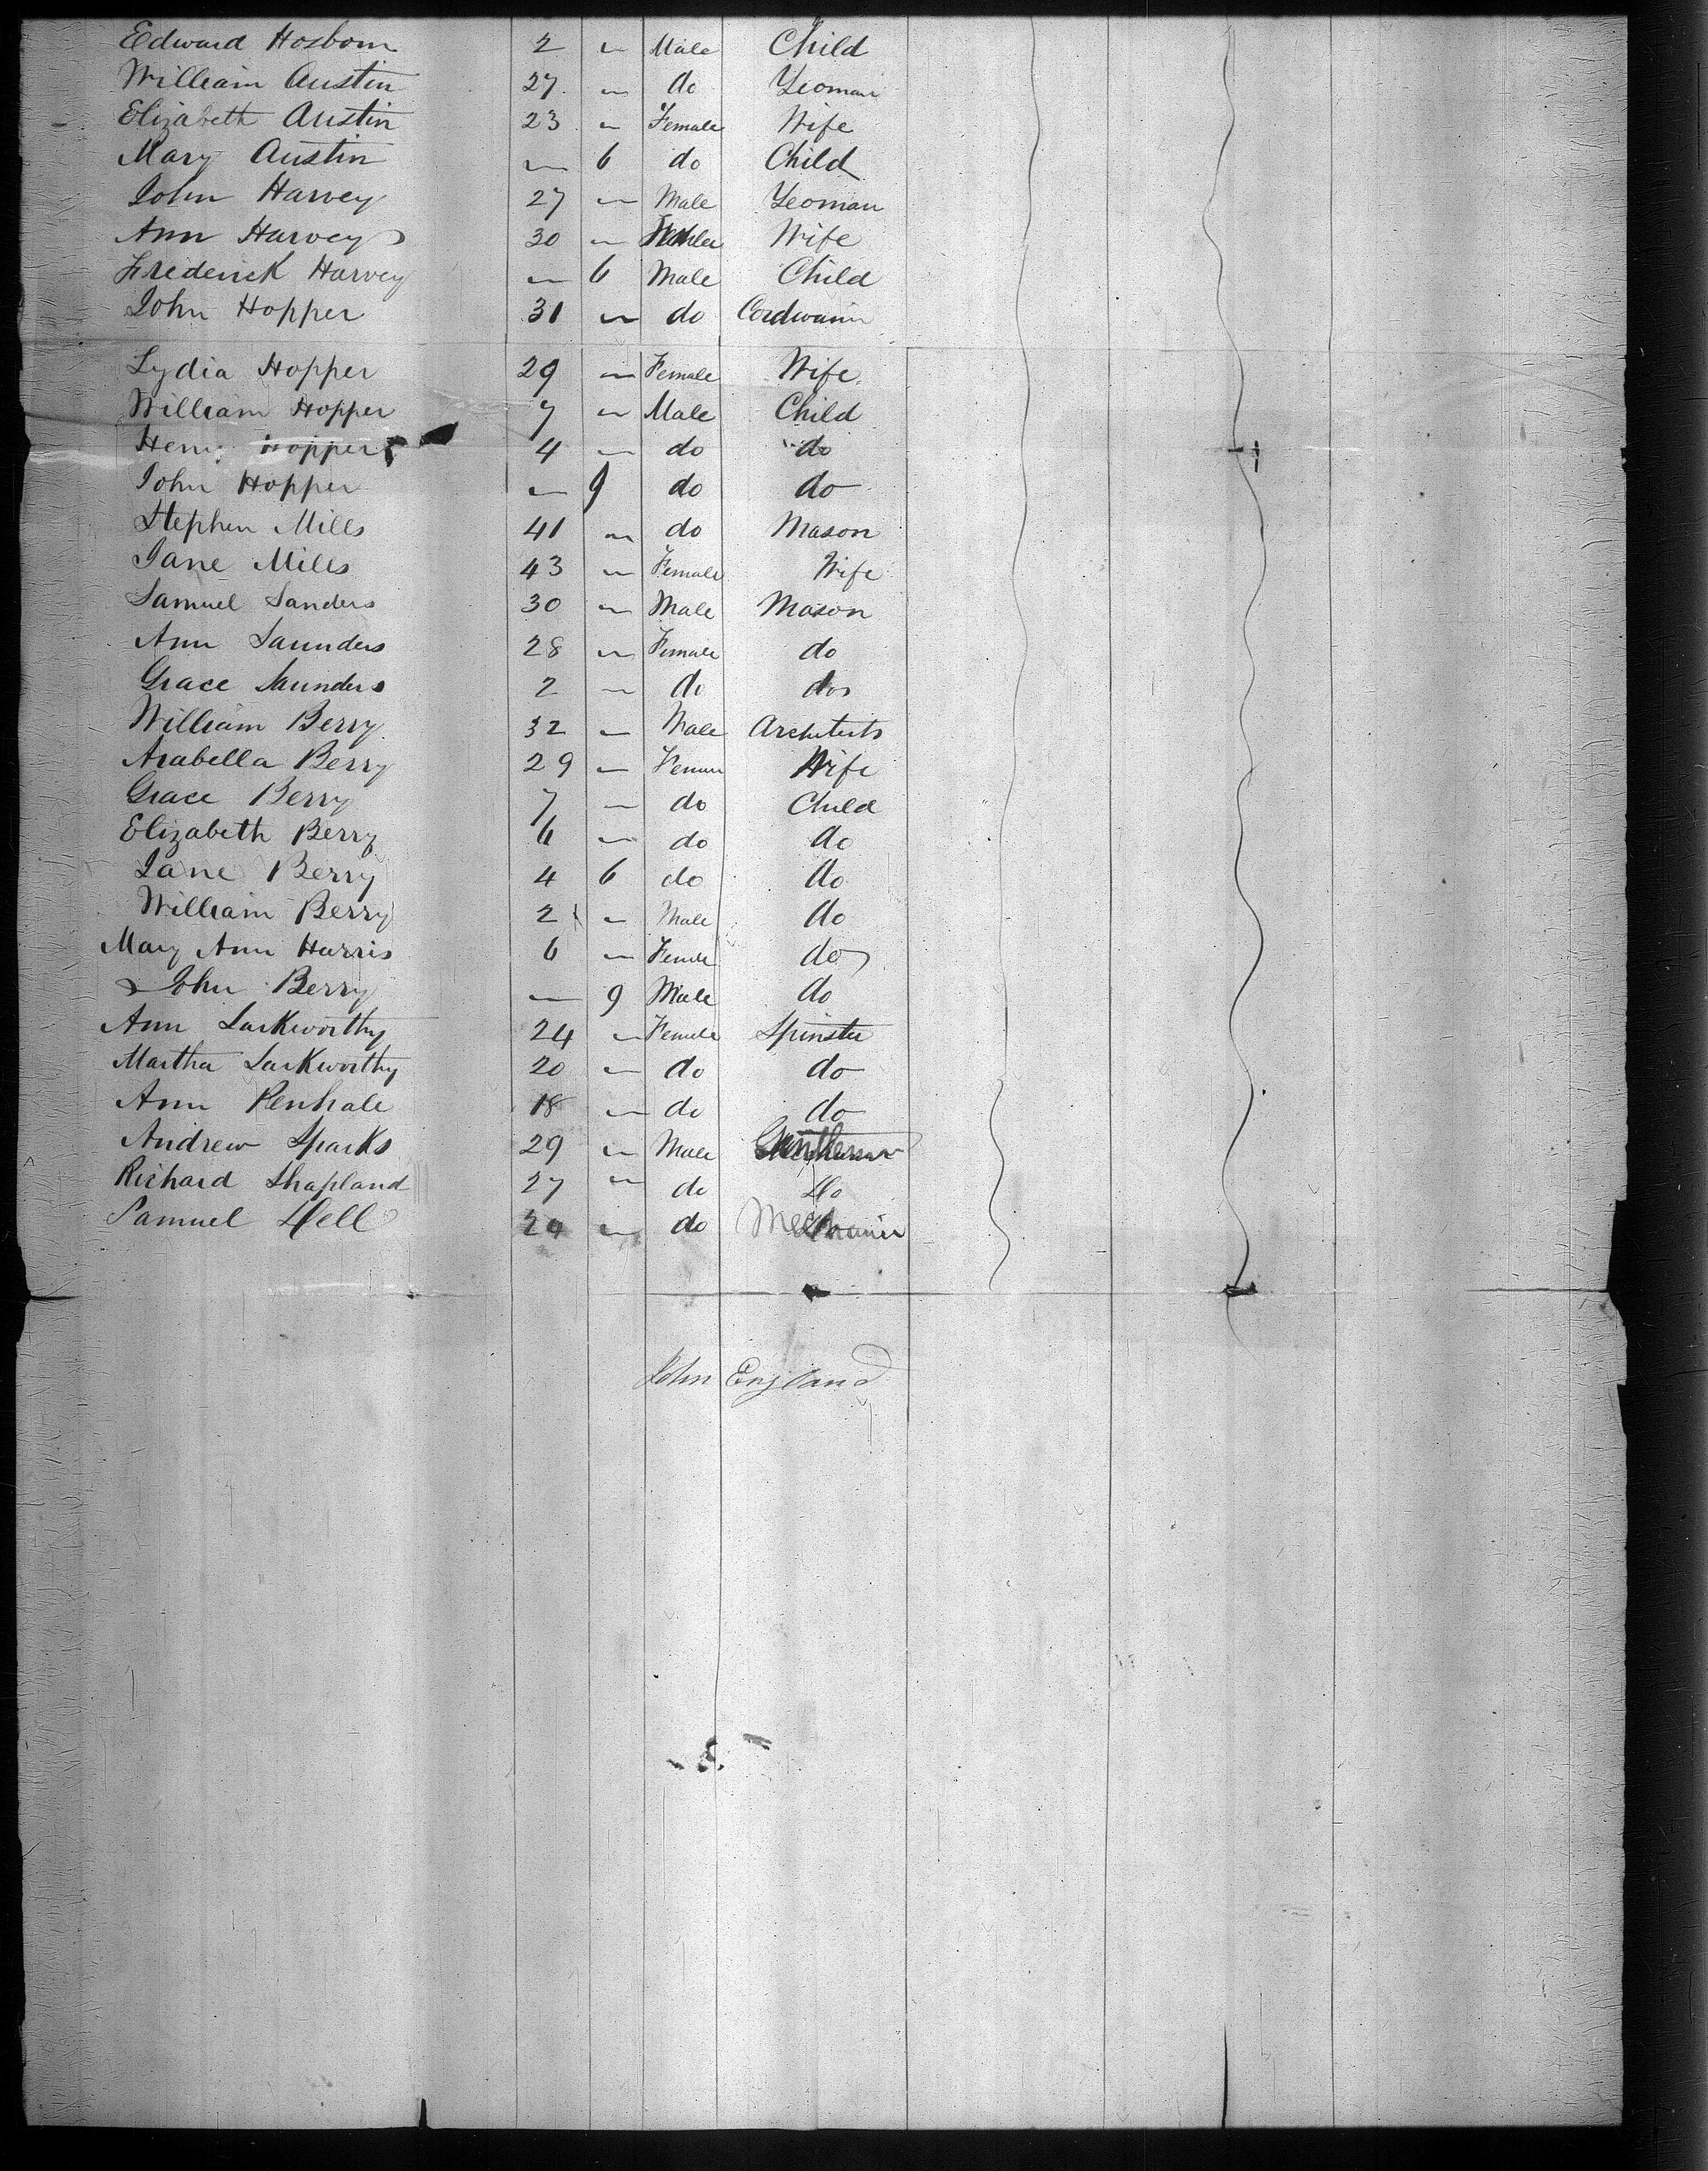 Edward Hosborn 2 " Male Child
William Austin 27 " do Yeoman
Elizabeth Austin 23 " Female Wife
Mary Austin " 6 do Child
John Harvey 27 " Male Yeoman
Ann Harvey 30 " Wife
Frederick Harvey " 6 Male Child
John Hopper 31 " do Cordwainr
Lydia Hopper 29 " Female Wife
William Hopper 7 " Male Child
Henry Hopper 4 " do do
John Hopper " 9 do do
Stephen Mills 41 " do Mason
Jane Mills 43 " Female Wife
Samuel Sanders 30 " Male Mason
Ann Saunders 28 " Female do
Grace Saunders 2 " do do
William Berry 32 " Male Architects
Arabella Berry 29 " Wife
Grace Berry 7 " do Child
Elizabeth Berry 6 " do do
Jane Berry 4 6 do do
William Berry 2 " Male do
Mary Ann Harris 6 " Female do
John Berry " 9 Male do
Ann Larkworthy 24 " Female Spinster
Martha Larkworthy 20 " do do
Ann Penhale 18 " do do
Andrew Sparks 29 " Male Gentleman
Richard Shapland 27 " do Do
Samuel Dell " do Mechanic
John England